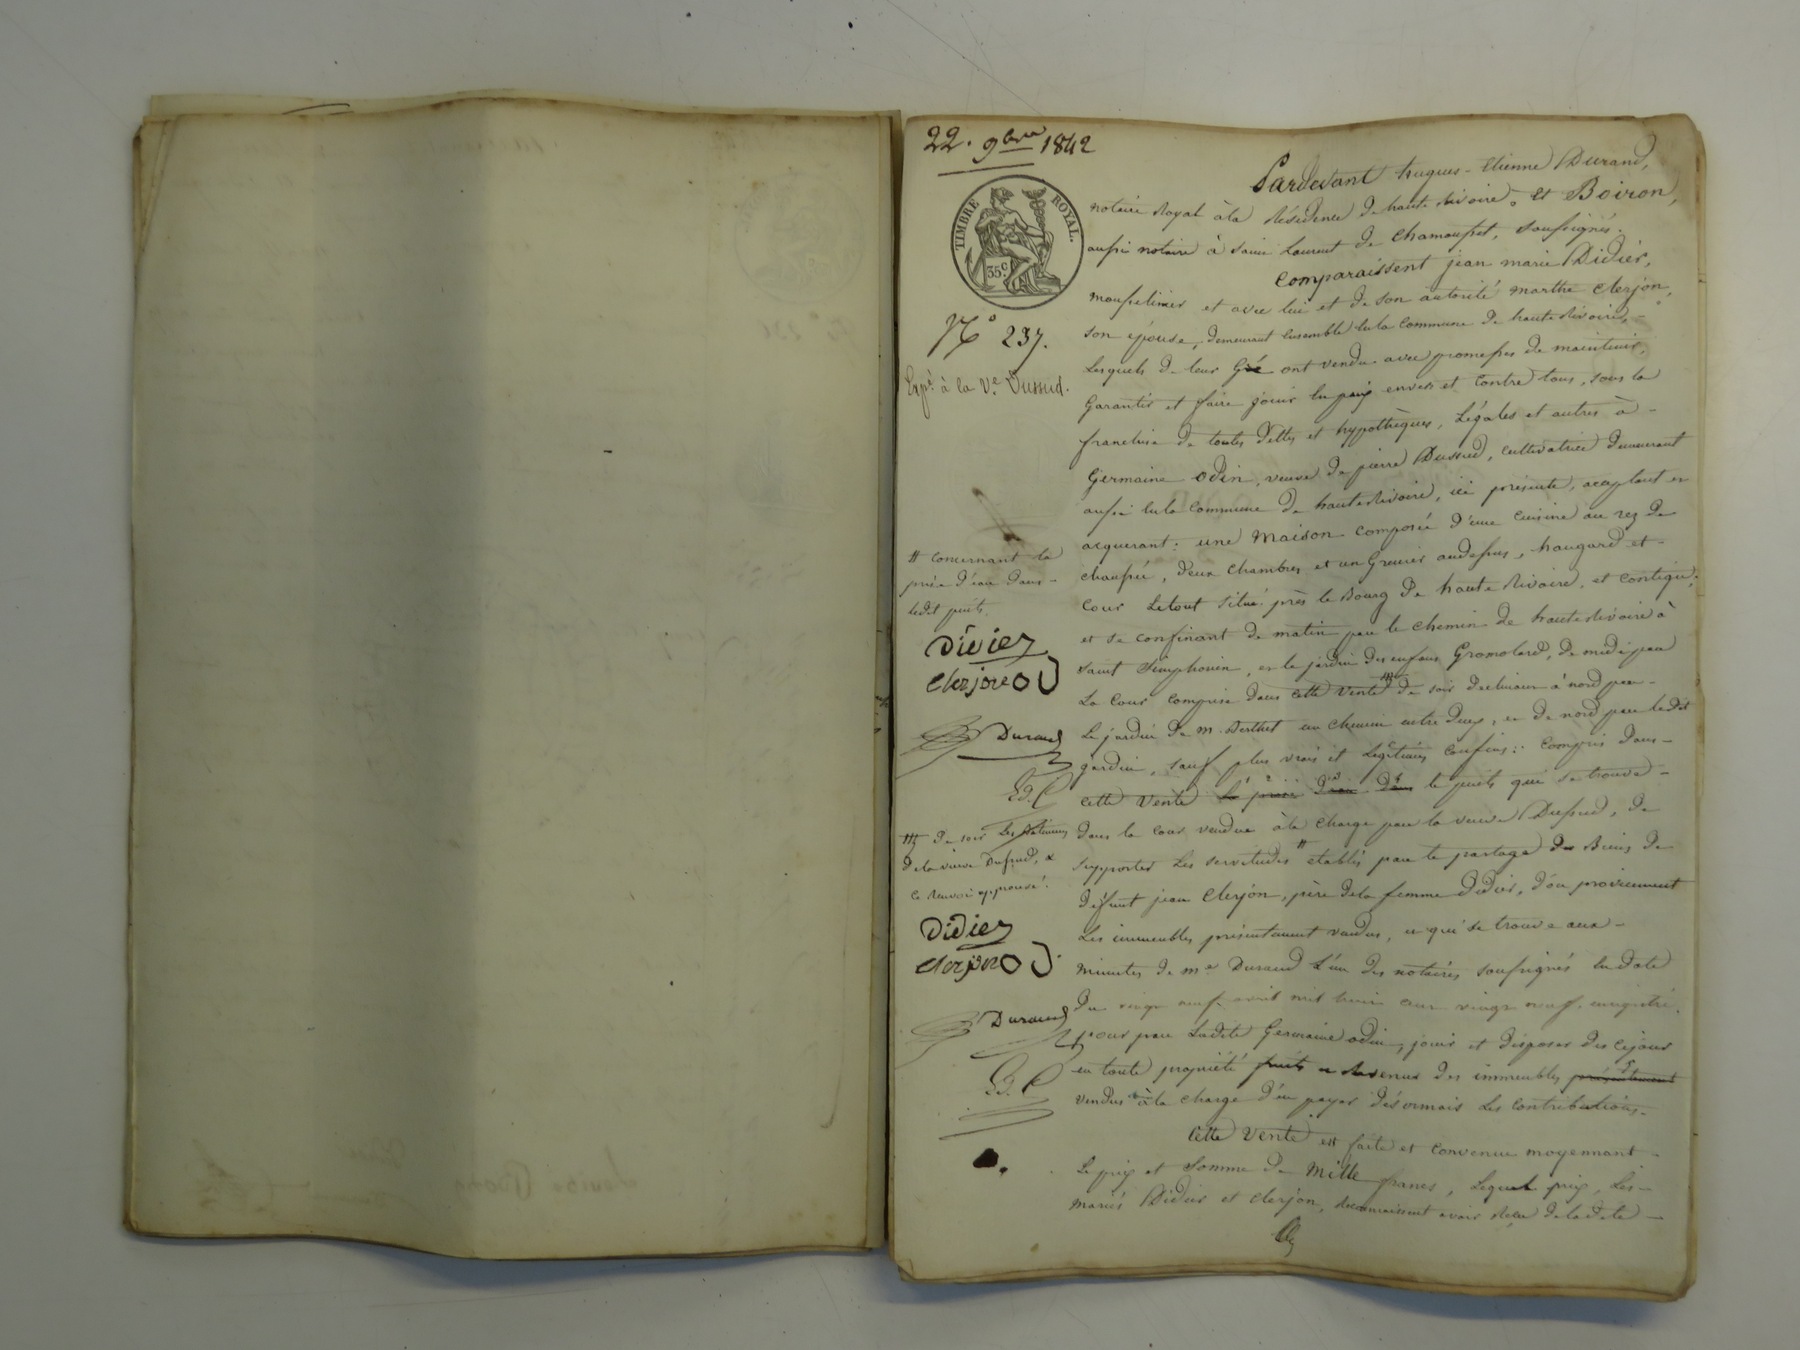 22. 9bre 1842
TIMBRE ROYAL.
35c
No 237.
Expé. à la Ve. Dussud.
Pardevant hugues-Etienne Durand,
notaire Royal à la Résidence de haute Rivoire, Et Boiron,
aussi notaire à Saint Laurent de Chamousset, soussignés.
Comparaissent jean marie Didier,
et avec lui et de son autorité marthe Clerjon,
son épouse, demeurant Ensemble en la Commune de haute Rivoire, -
Lesquels de leur Gré ont vendu avec promesses de maintenir,
Garantir et faire jouir en paix envers et Contre tous, sous la
franchise de toutes dettes et hypothèques, Légales et autres à -
Germaine Odin, veuve de pierre Dussud, cultivatrice demeurant
aussi en la Commune de haute Rivoire, ici présente, acceptant et
acquerant: une Maison composée d'une Cuisine au rez de
chaussée, deux Chambres et un Grenier audessus, hangard et -
Cour Letout situé près le Bourg de haute Rivoire, et contigu,
et se confinant de matin par le chemin de haute Rivoire à
saint Simphorien, et le jardin des enfans Gromolard, de midi par
La Cour comprise dans cette vente de soir declinant à nord par -
Le jardin de m. Berthet un chemin entre deux, et de nord par ledit
jardin, sauf plus vrais et Légitimes confins: Compris dans -
cette vente la prise d'eau dans le puits qui se trouve -
dans la cour vendue à la charge par la veuve Dussud, de
supporter Les servitudes # etablis par le partage des Biens de
défunt jean Clerjon, père de la femme Didier, d'où proviennent
Les immeubles présentement vendus, et qui se trouve aux -
minutes de me Durand L'un des notaires soussignés en date
du vingt neuf avril mil huit cent vingt neuf. enregistré.
pour par Ladite Germaine odin, jouir et disposer des cejour
en toute propriété fruits et Revenus des immeubles présentement
vendus à la charge d'en payer désormais Les Contributions. -
Cette Vente est faite et convenue moyennant -
Le prix et Somme de Mille francs, Lequel prix, Les -
mariés Didier et Clerjon, Reconnaissent avoir Reçu de ladite -
# concernant la
prise d'eau dans -
ledit puits.
Didier
Clerjon
Durand
de soir Les
de la veuve Dussud, &
Ce Renvoi approuvé.
Didier
Clerjon
Durand